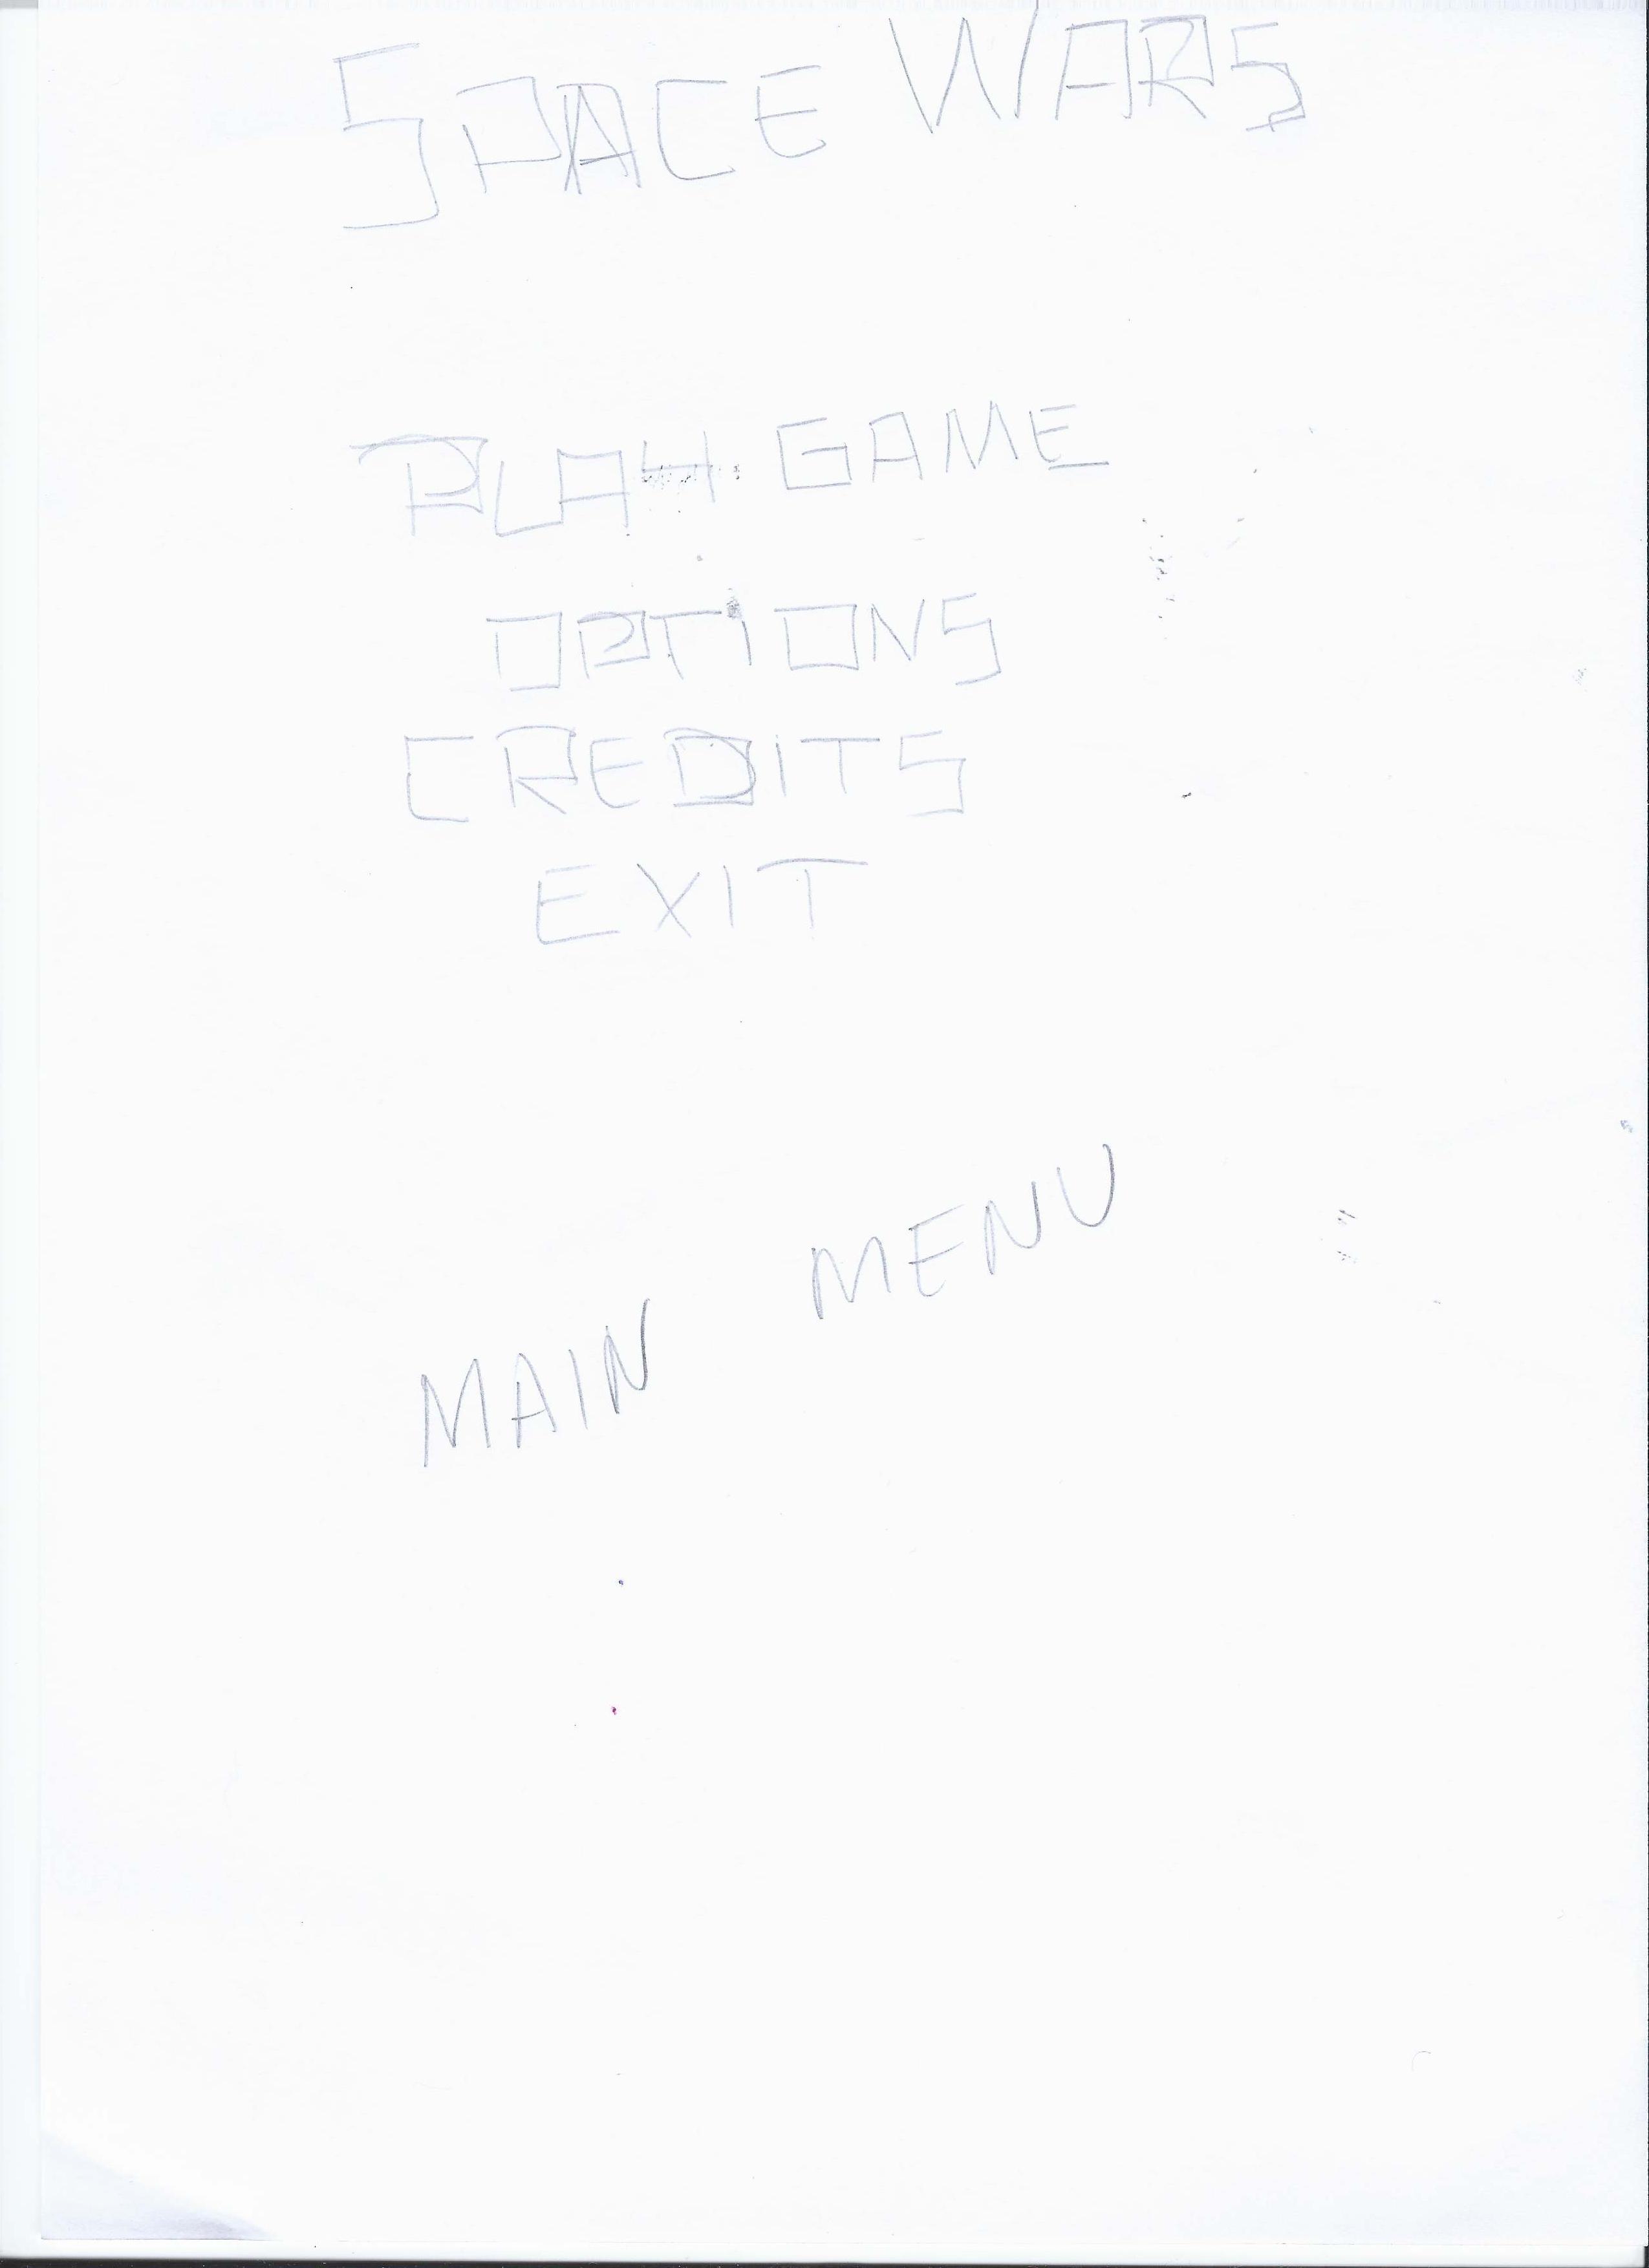 SPACE WARS
PLAY GAME
OPTIONS
CREDITS
EXIT
MAIN MENU